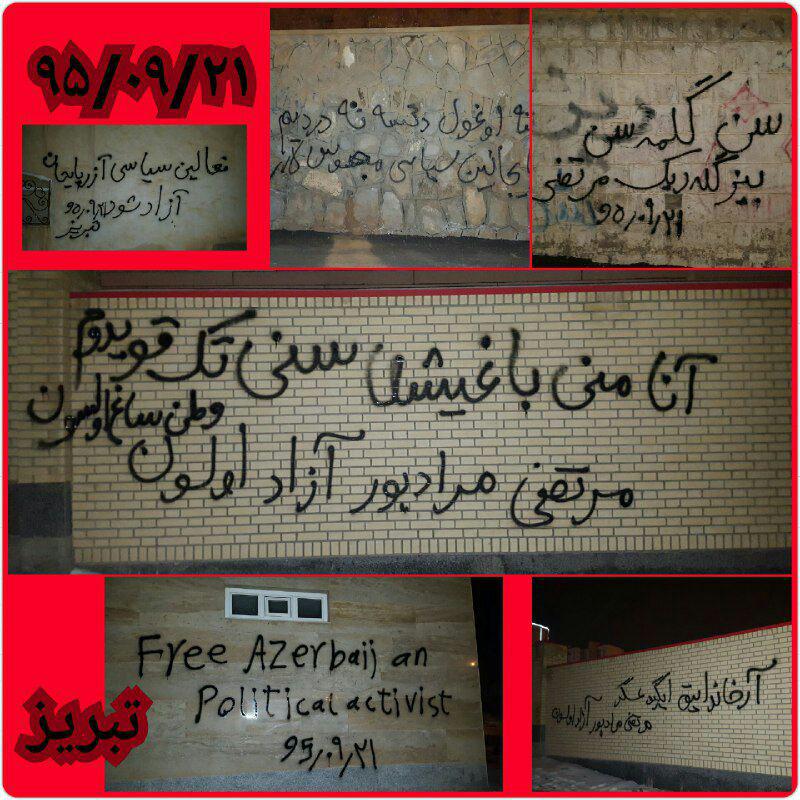 ۹۵/۰۹/۲۱
فعالین سیاسی آزربایجان
آزاد شود ۹۵٫۰۹٫۲۱
تبریز
اوغول دئسه نه دردیم
سیاسی محبوس
سن گلمه سن
بیز گله دیک مرتضی
۹۵٫۰۹٫۲۱
آنا منی باغیشلا سنی تک قویدوم
وطن ساغ اولسون
مرتضی مرادپور آزاد اولسون
Free Azerbaijan
Political activist
95٫۰۹٫۲۱
تبریز
آرخانداییق ایگید عسگر
مرتضی مرادپور آزاد اولسون